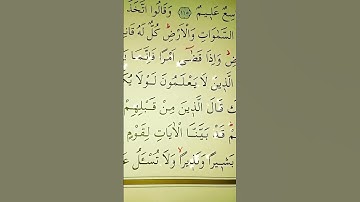 سِعٌ عَلٖيمٌ ﴿١١٥﴾ وَقَالُوا اتَّخَذَ
السَّمٰوَاتِ وَالْاَرْضِ كُلٌّ لَهُ قَانِ
ضِ وَاِذَا قَضٰٓى اَمْرًا فَاِنَّمَا يَ
الَّذٖينَ لَا يَعْلَمُونَ لَوْلَا يُكَ
كَ قَالَ الَّذٖينَ مِنْ قَبْلِهِمْ
مْ قَدْ بَيَّنَّا الْاٰيَاتِ لِقَوْمٍ
بَشٖيرًا وَنَذٖيرًا وَلَا تُسْـَٔلُ عَ